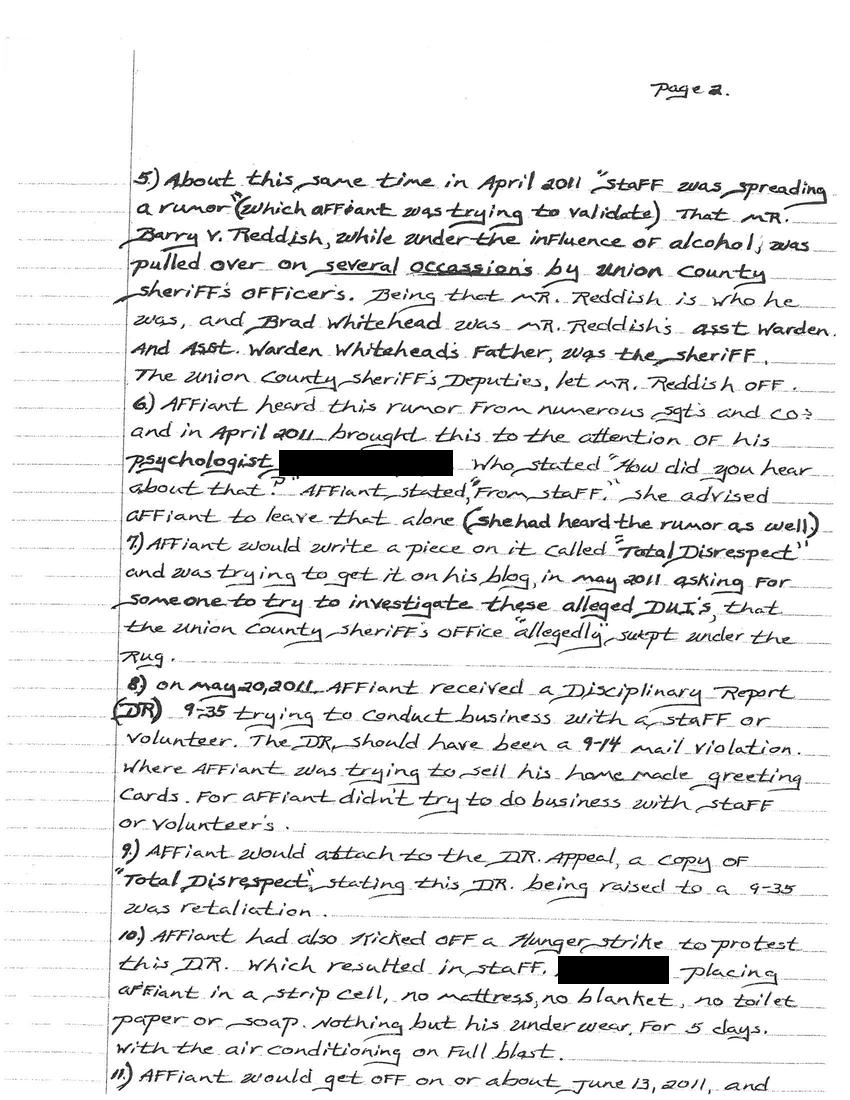 Page 2.
5.) About this same time in April 2011 "staff was spreading
a rumor" (which affiant was trying to validate) That MR.
Barry V. Reddish, while under the influence of alcohol, was
pulled over on several occassion's by Union County
Sheriff's Officer's. Being that MR. Reddish is who he
was, and Brad Whitehead was MR. Reddish's asst Warden.
And Asst. Warden Whitehead's Father, was the sheriff.
The Union County Sheriff's Deputies, let MR. Reddish off.
6.) Affiant heard this rumor From numerous sgt's and CO's
and in April 2011 brought this to the attention of his
psychologist who stated "How did you hear
about that?" Affiant stated, "From staff." she advised
affiant to leave that alone (she had heard the rumor as well)
7.) Affiant would write a piece on it called "Total Disrespect"
and was trying to get it on his blog, in may 2011 asking For
someone to try to investigate these alleged DUI's, that
the Union County Sheriff's Office "allegedly" swept under the
Rug.
8.) on may 20, 2011, Affiant received a Disciplinary Report
(DR) 9-35 trying to conduct business with a staff or
volunteer. The DR, should have been a 9-14 mail violation.
Where Affiant was trying to sell his home made greeting
Cards. For affiant didn't try to do business with staff
or volunteer's.
9.) Affiant would attach to the DR. Appeal, a copy of
"Total Disrespect", stating this DR. being raised to a 9-35
was retaliation.
10.) Affiant had also Kicked off a Hunger strike to protest
this DR. Which resulted in staff, placing
affiant in a strip cell, no mattress, no blanket, no toilet
paper or soap. Nothing but his underwear. For 5 days.
With the air conditioning on Full blast.
11.) Affiant would get off on or about June 13, 2011, and